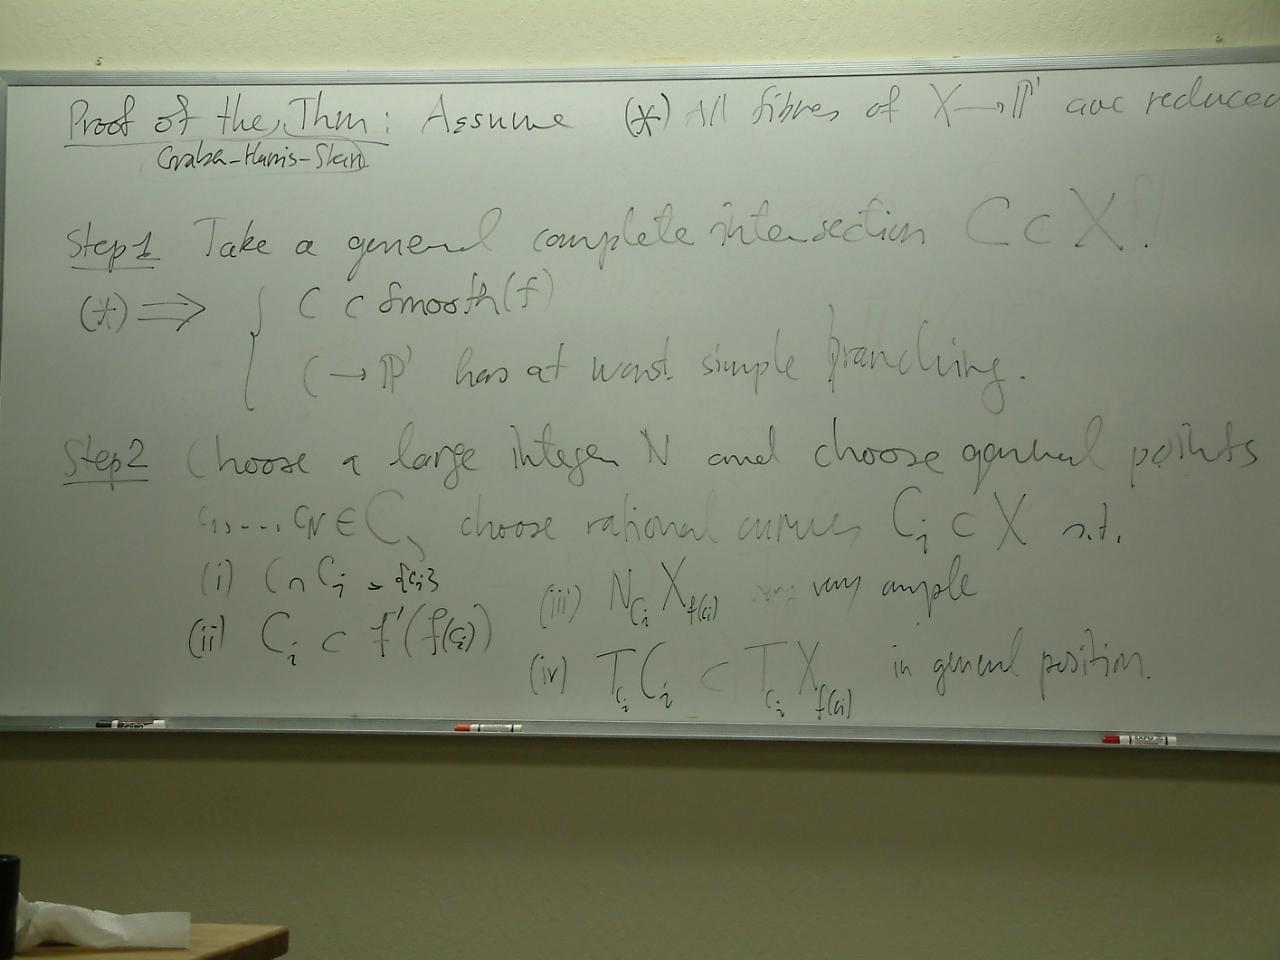 Proof of the Thm: Assume (*) All fibres of X → P¹ are reduced
Graber-Harris-Starr
Step 1 Take a general complete intersection C ⊂ X.
(*) ⇒ { C ⊂ Smooth(f)
C → P¹ has at worst simple branching.
Step 2 Choose a large integer N and choose general points
c₁, ... c_N ∈ C, choose rational curves C_i ⊂ X s.t.
(i) C ∩ C_i = {c_i}
(ii) C_i ⊂ f⁻¹(f(c_i))
(iii) N_{C_i} X_{f(c_i)} very ample
(iv) T_{c_i} C_i ⊂ T_{c_i} X_{f(c_i)} in general position.